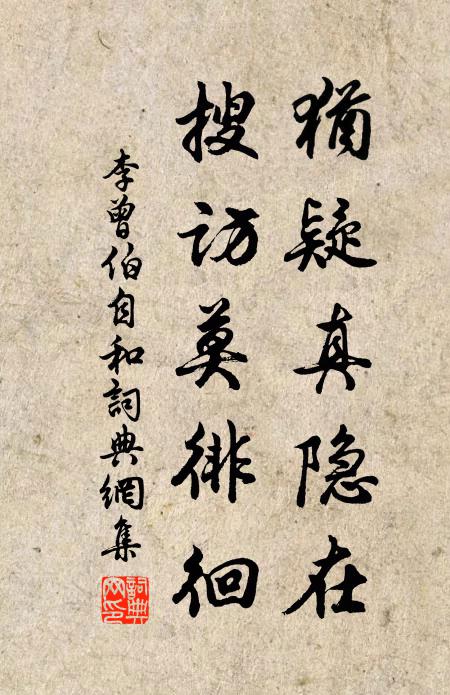 猶疑真隐在
搜訪莫徘徊
李曾伯自和詞典網集
詞典
网印